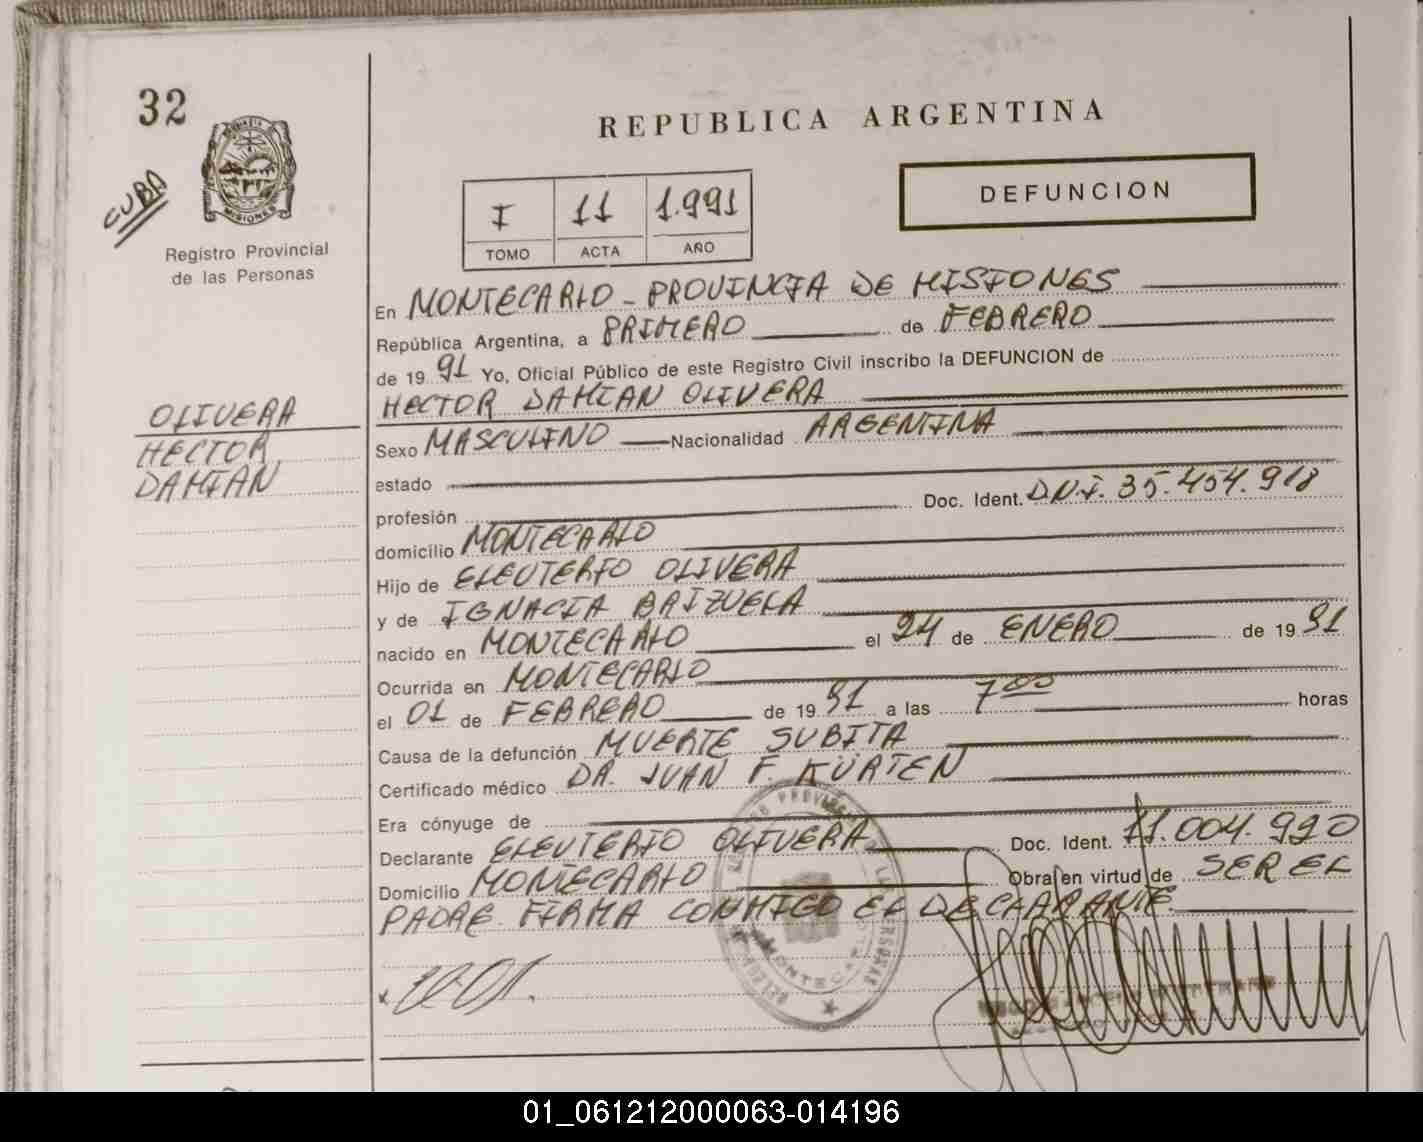 32
REPUBLICA ARGENTINA
CUBA
MISIONES
DEFUNCION
I 11 1.991
TOMO ACTA AÑO
Registro Provincial
de las Personas
En MONTECARLO - PROVINCIA DE MISIONES
República Argentina, a PRIMERO de FEBRERO
de 19 91 Yo, Oficial Público de este Registro Civil inscribo la DEFUNCION de
HECTOR DAMIAN OLIVERA
OLIVERA
HECTOR
DAMIAN
Sexo MASCULINO Nacionalidad ARGENTINA
estado
profesión Doc. Ident. D.N.I. 35.454.918
domicilio MONTECARLO
Hijo de ELEUTERIO OLIVERA
y de IGNACIA BAIZUELA
nacido en MONTECARLO el 24 de ENERO de 19 91
Ocurrida en MONTECARLO
el 01 de FEBRERO de 19 91 a las 7 00 horas
Causa de la defunción MUERTE SUBITA
Certificado médico DR. JUAN F. KÜRTEN
Era cónyuge de
Declarante ELEUTERIO OLIVERA Doc. Ident. 11.004.990
Domicilio MONTECARLO Obra en virtud de SER EL
PADRE FIRMA CONMIGO EL DECLARANTE
MONTECARLO
01_061212000063-014196